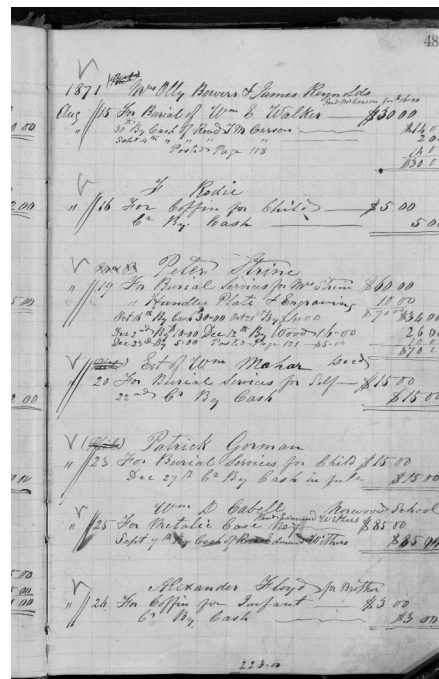 48
1871 Mrs Olly Bowers & James Reynolds
Aug 15 For Burial of Wm E. Walker — $30.00
30th By Cash of Revd J M Carson — $14.0
Sept 4th " " " " 2 0
Posted Page 118 14 0
$30 0
F Rodie
" 16 For Coffin for Child — $5.00
Cr By Cash — 5 00
Peter Strine
" 19 For Burial Services for Mrs Strine $60.00
" Handles Plate & Engraving 10.00
Oct 16th By Cash 30.00 Oct 21st By $6.00 $70 00 $36 00
Dec 2nd By 10.00 Dec 12th By Wood 16.00 26 00
Dec 23rd By 5.00 Posted Page 121 — $5.00
$70
Est of Wm Mahar Decd
" 20 For Burial Services for Self — $15.00
22nd Cr By Cash $15.00
Patrick Gorman
" 23 For Burial Services for Child $15.00
Dec 27th Cr By Cash in full $15.00
Wm D Cabell Norwood School
" 25 For Metalic Case Revd Edmund Withers $85.00
Sept 7th By Cash of Revd Edmund Withers $85 00
Alexander Floyd for Brother
" 26 For Coffin for Infant — $3.00
Cr By Cash — $3.00
223.00